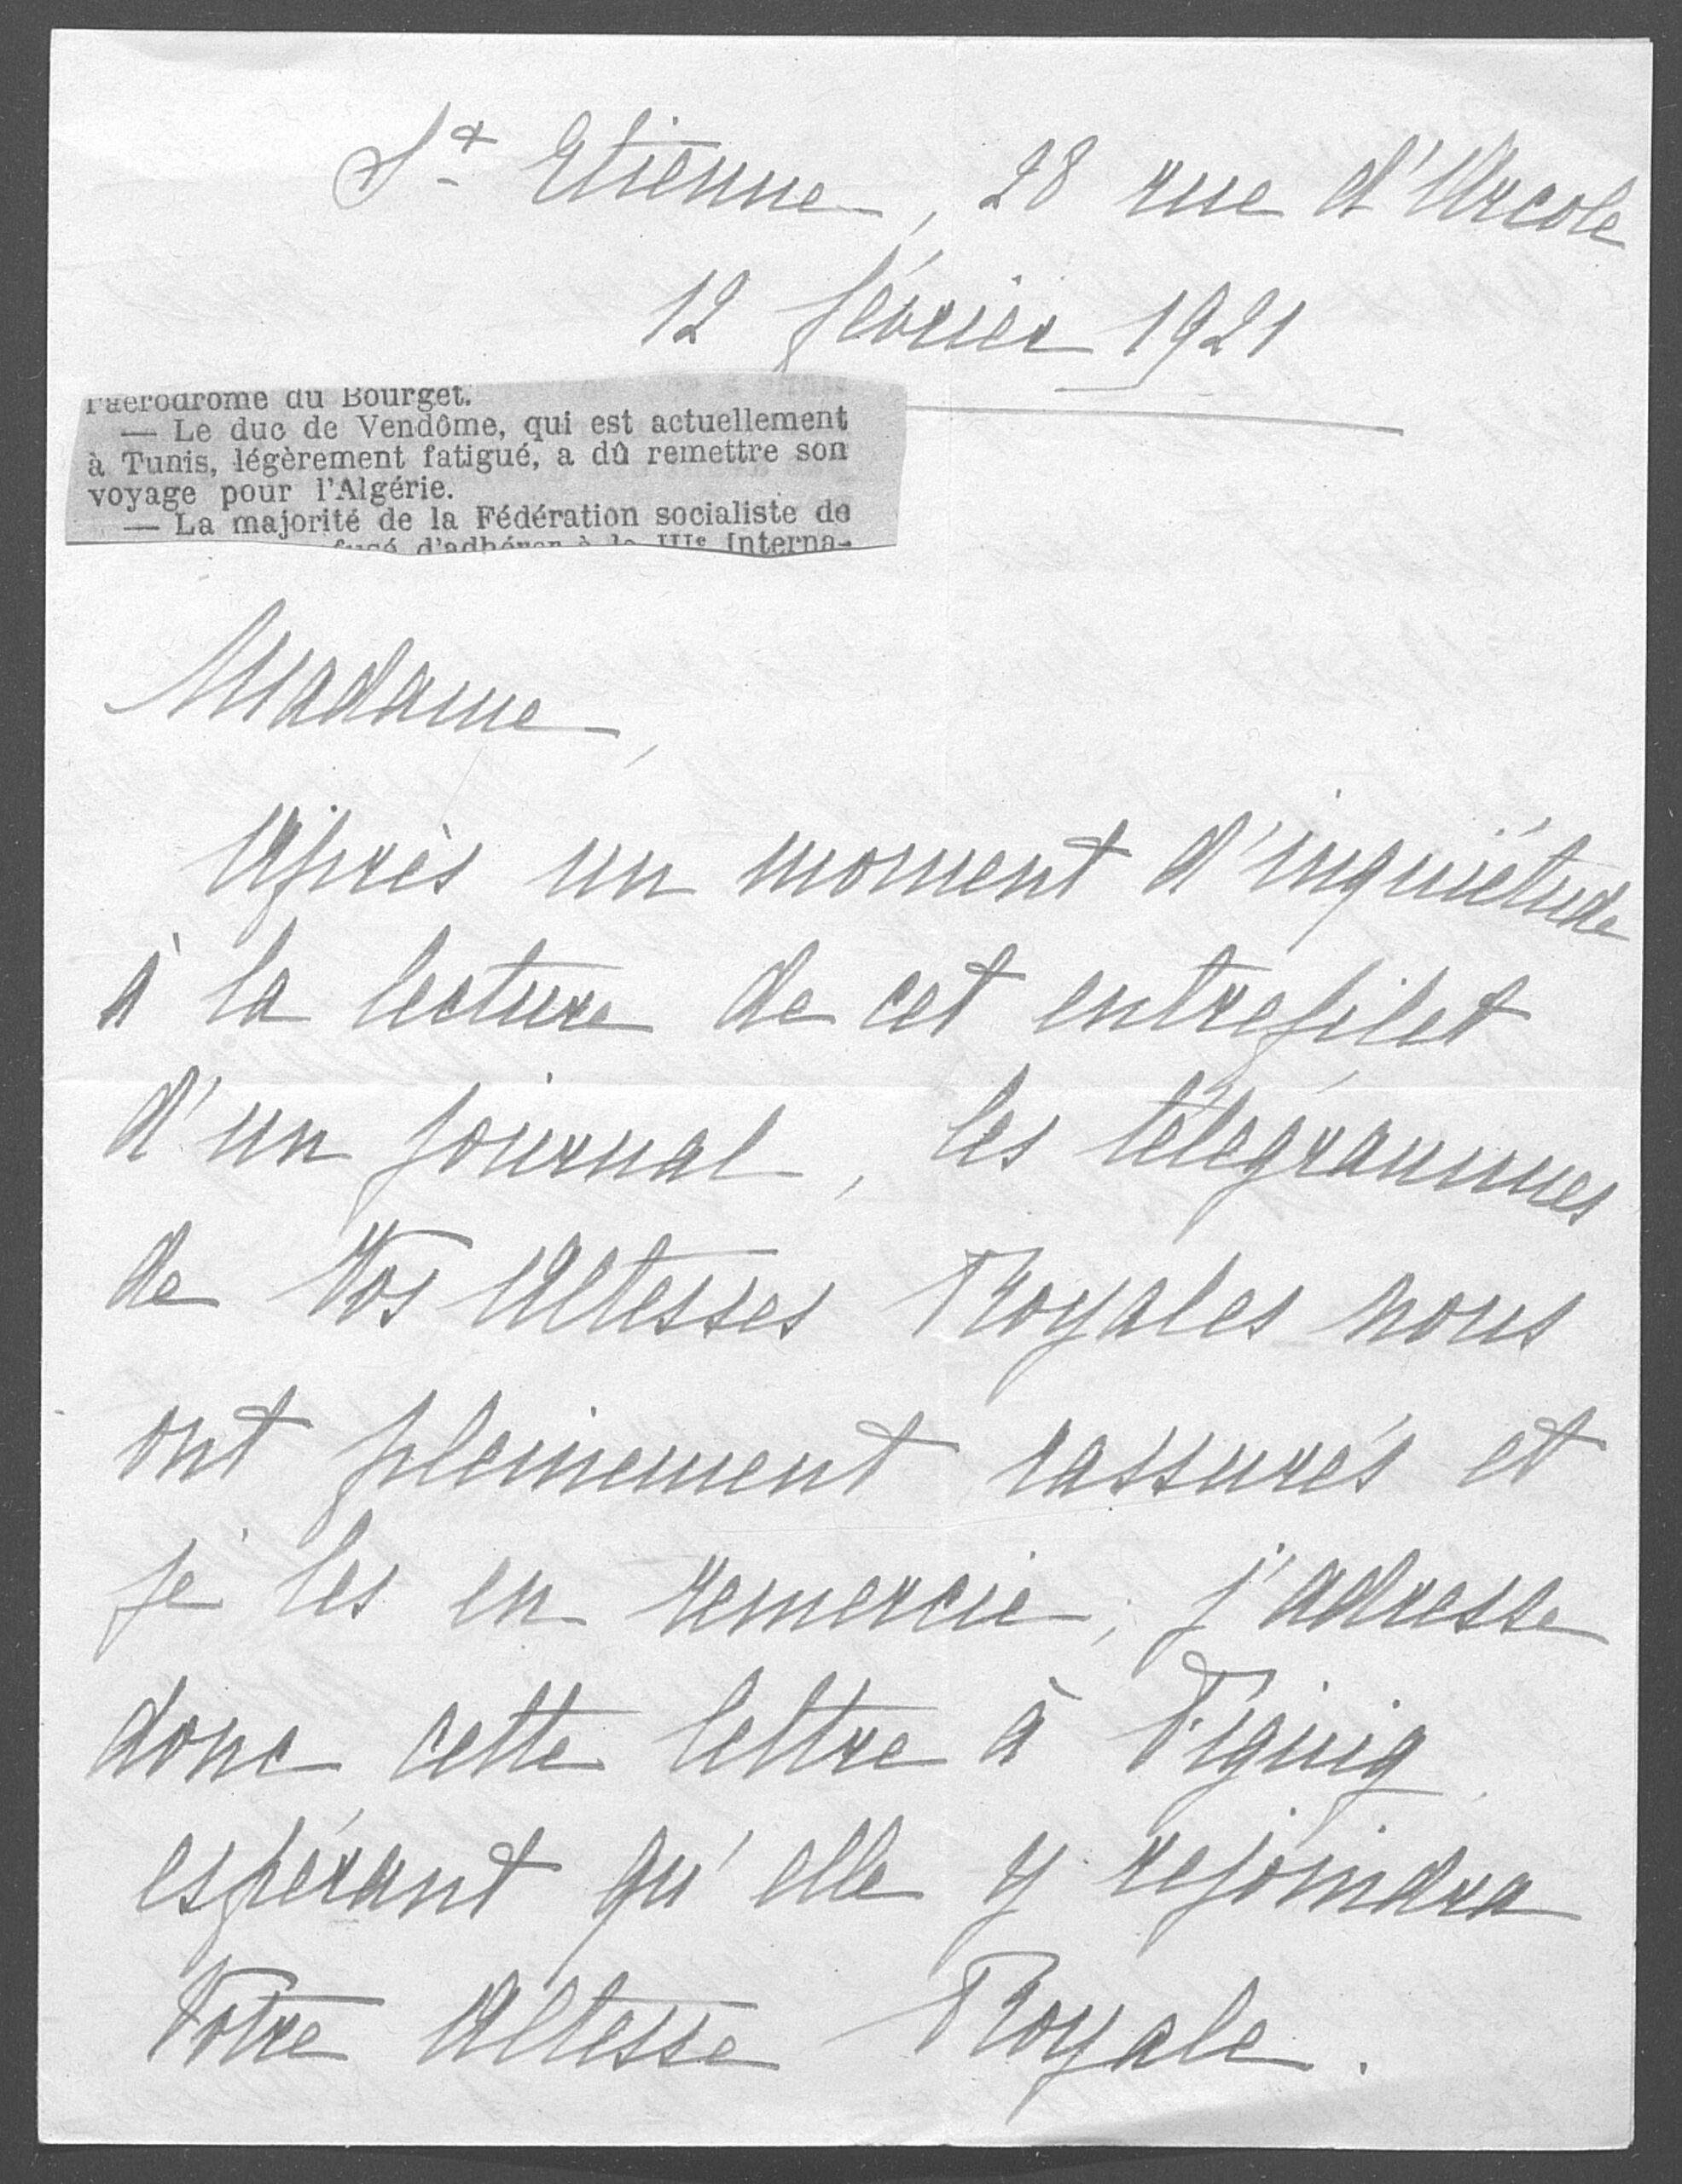 St Etienne, 28 rue d'Arcole
12 février 1921
l'aérodrome du Bourget.
— Le duc de Vendôme, qui est actuellement
à Tunis, légèrement fatigué, a dû remettre son
voyage pour l'Algérie.
— La majorité de la Fédération socialiste de
d'adhérer à la IIIe Interna-
Madame,
Après un moment d'inquiétude
à la lecture de cet entrefilet
d'un journal, les télégrammes
de Vos Altesses Royales nous
ont pleinement rassurés et
je les en remercie; j'adresse
donc cette lettre à Figuig
espérant qu'elle y rejoindra
Votre Altesse Royale.